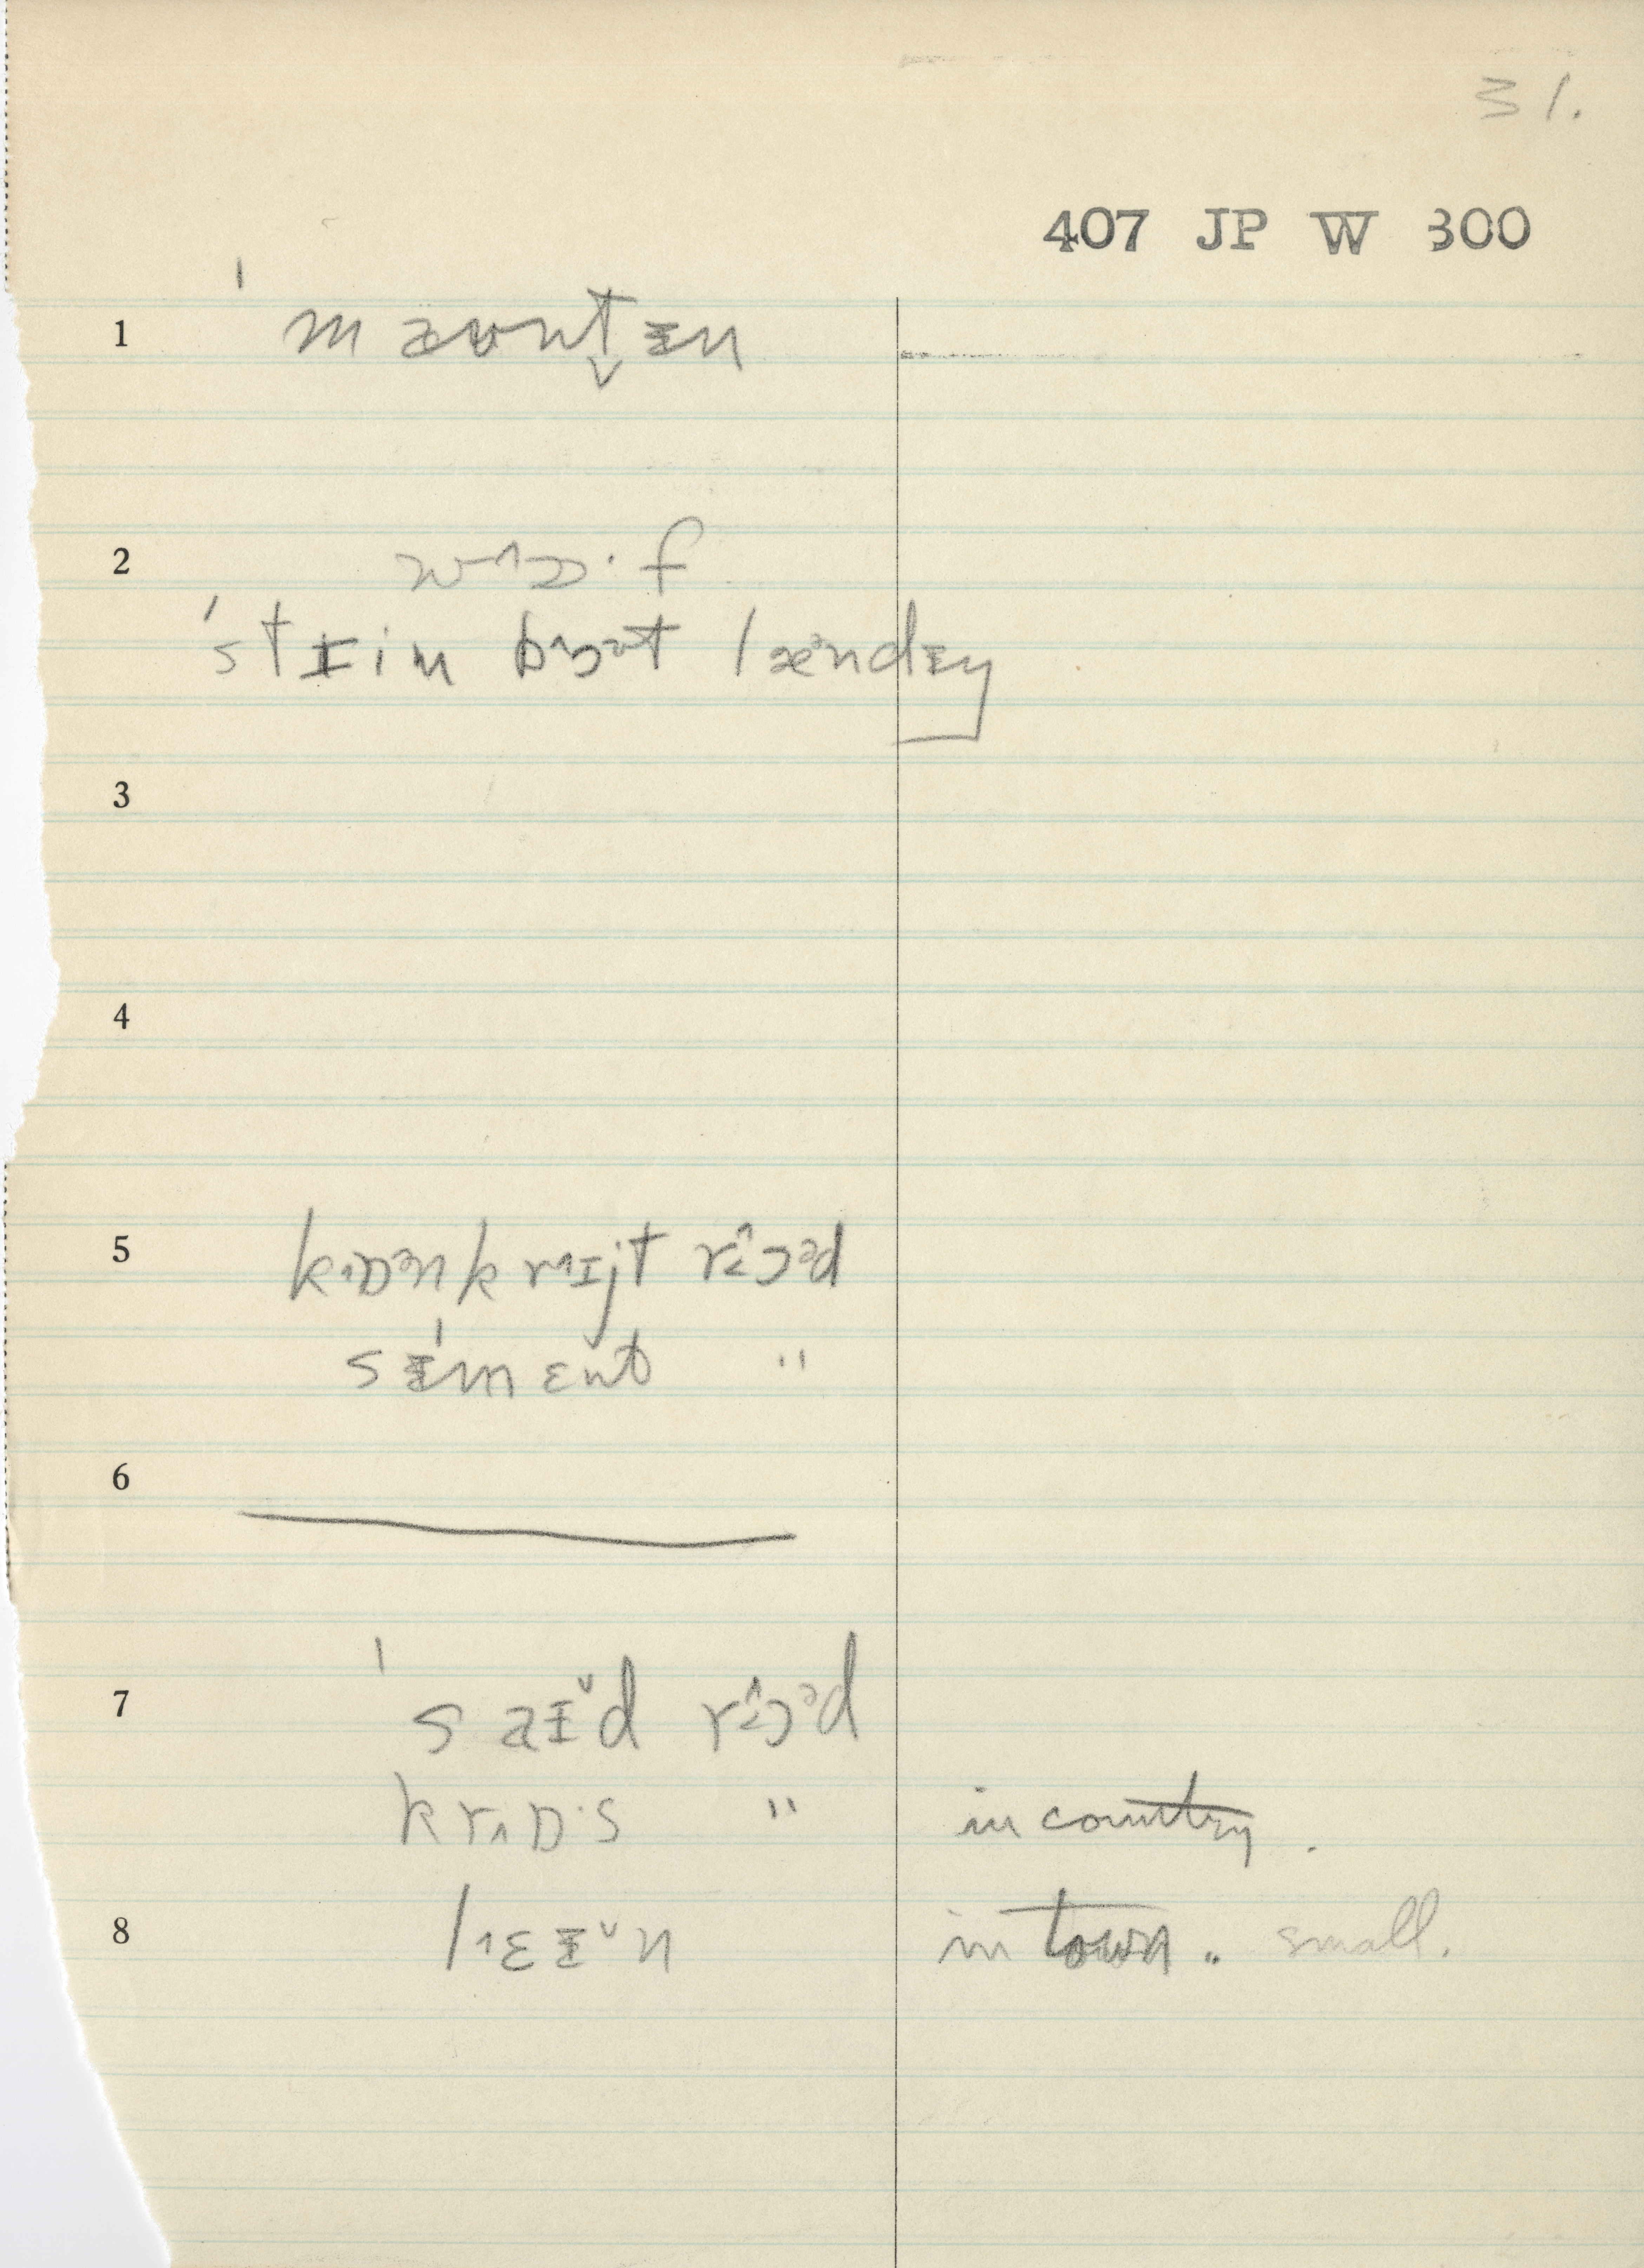 31.
407 JP W 300
1 ˈmaʊntᵻn
2 wɔ·f
ˈstɪim boət læəndᵻŋ
3
4
5 kɒənkrɪjt rɔəd
sᵻˈmɛnt "
6
7 ˈsaᵻd rɔəd
krɒ·s " in country.
8 lɛᵻn in town. small.